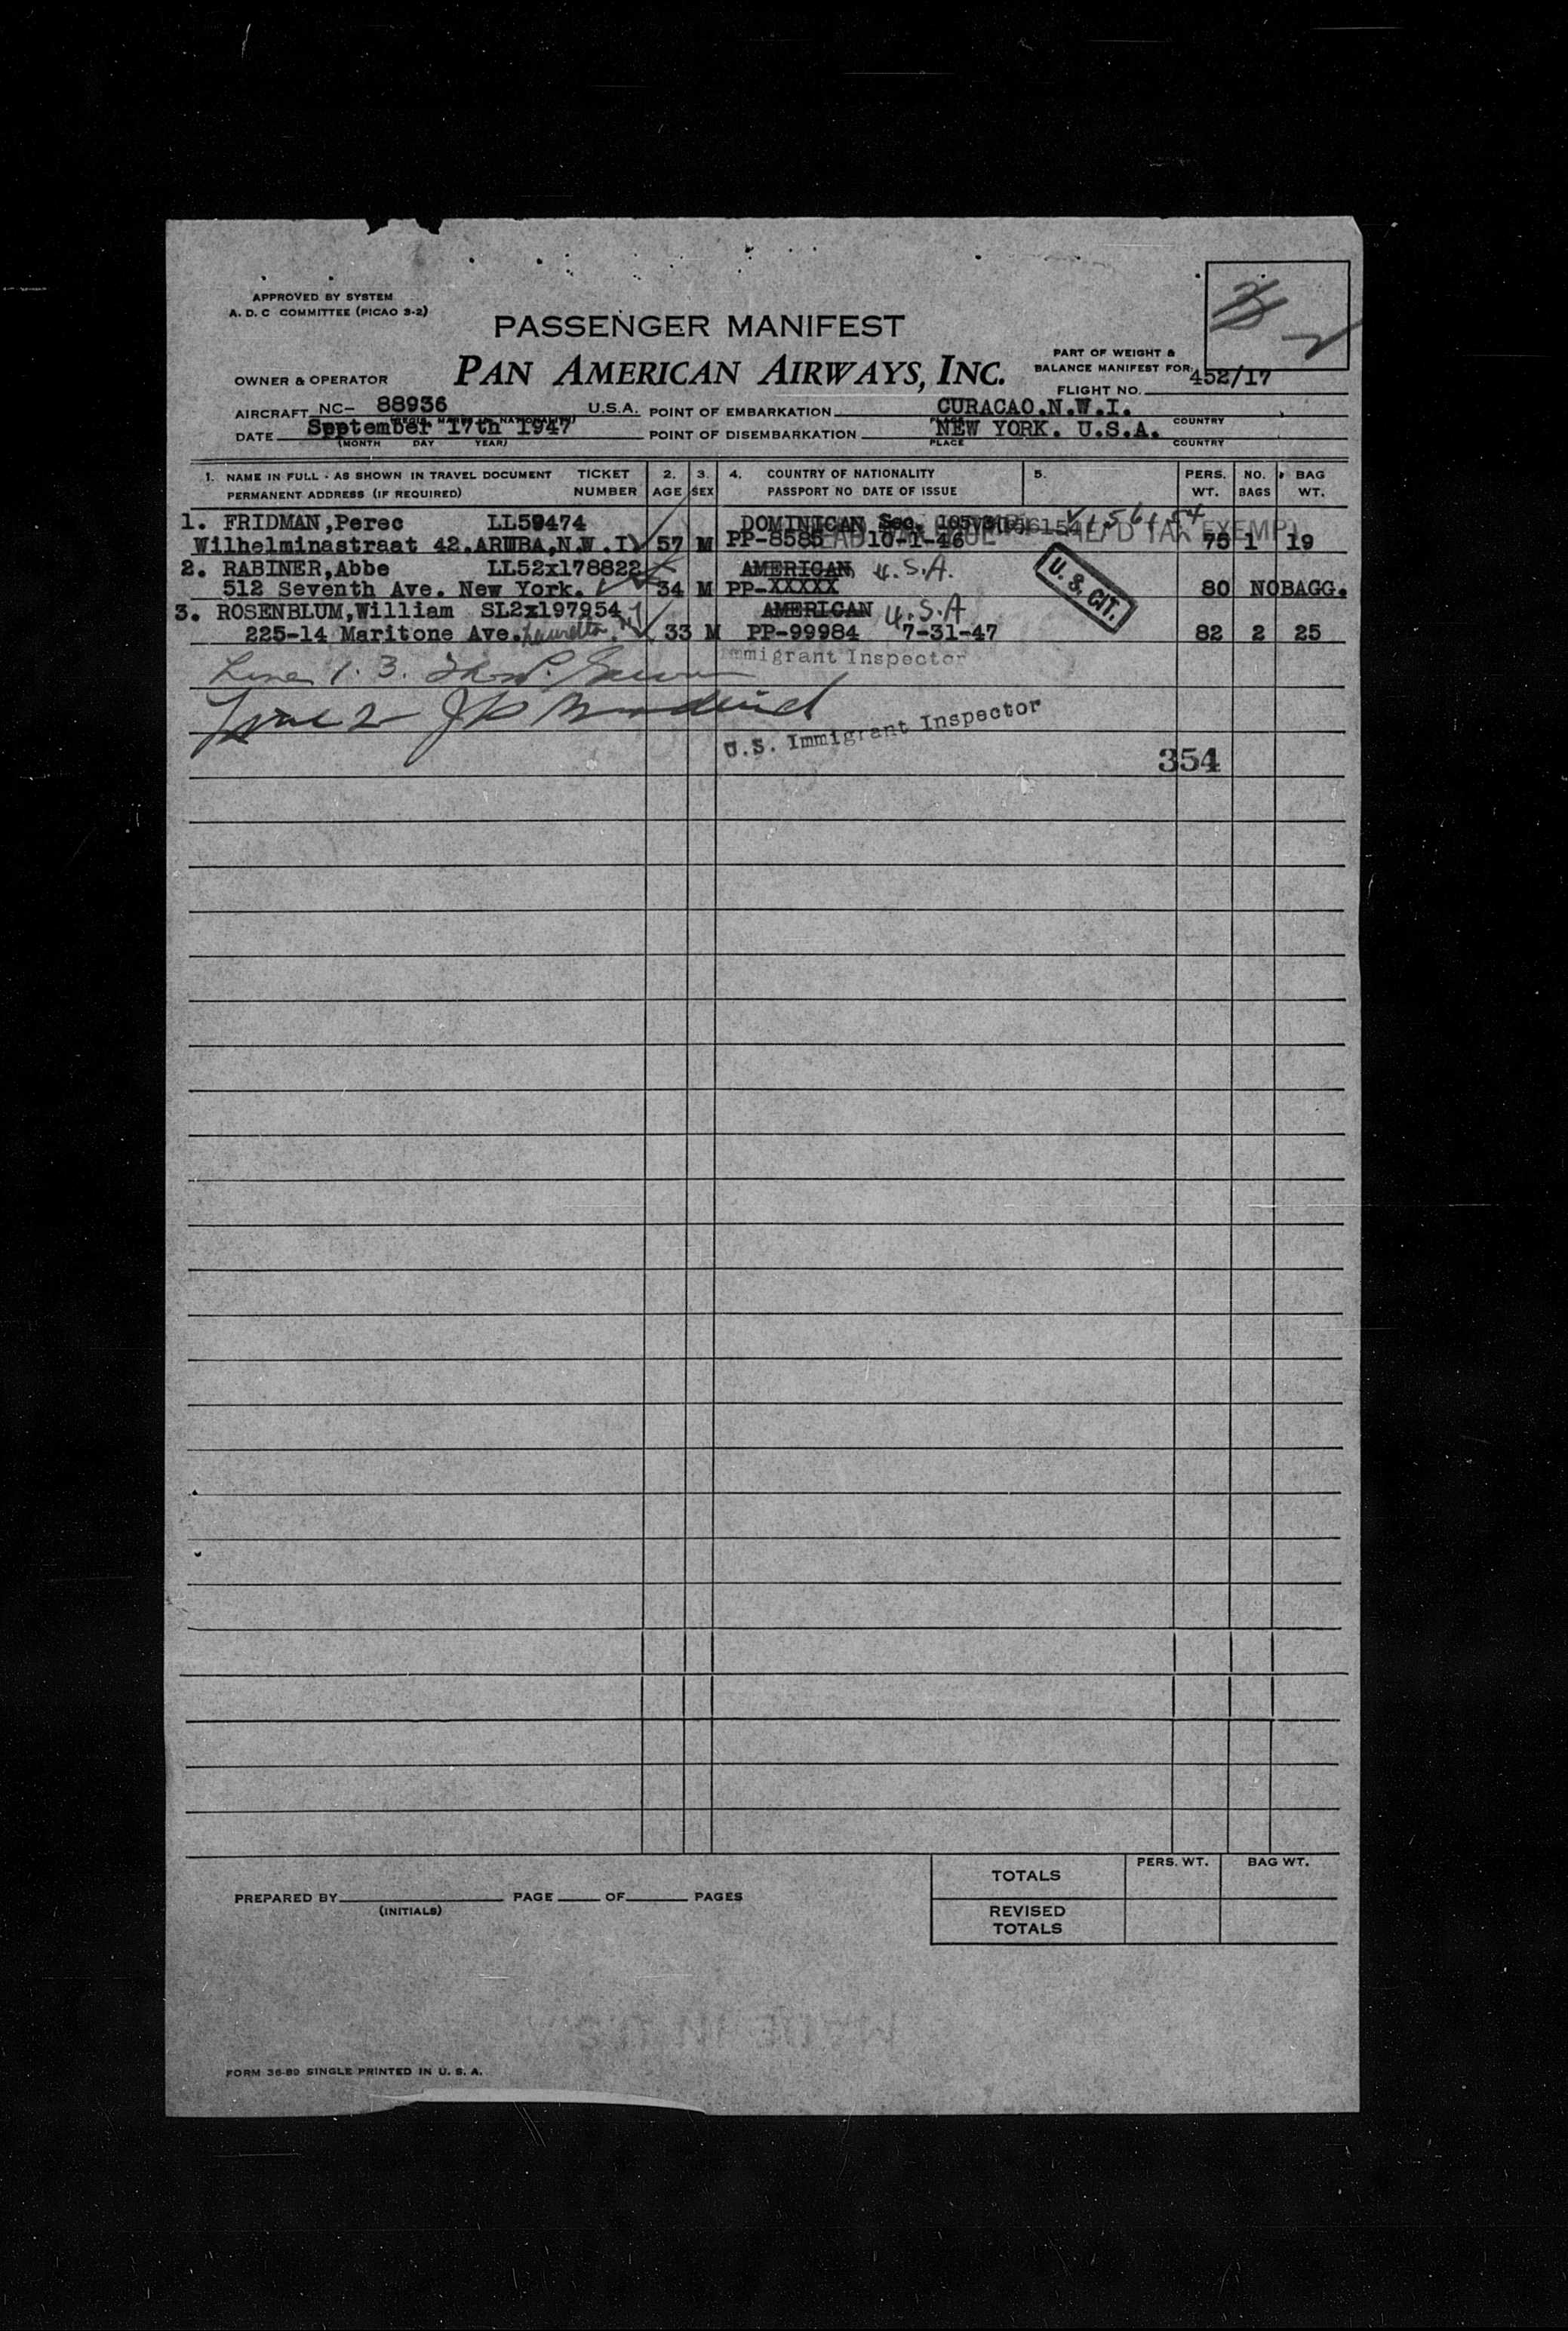 APPROVED BY SYSTEM
A. D. C COMMITTEE (PICAO 3-2)
PASSENGER MANIFEST
PAN AMERICAN AIRWAYS, INC.
OWNER & OPERATOR
PART OF WEIGHT &
BALANCE MANIFEST FOR
FLIGHT NO. 452/17
AIRCRAFT NC- 88936 U.S.A. POINT OF EMBARKATION CURACAO.N.W.I.
PLACE COUNTRY
DATE September 17th 1947 POINT OF DISEMBARKATION NEW YORK. U.S.A.
(MONTH DAY YEAR) PLACE COUNTRY
1. NAME IN FULL - AS SHOWN IN TRAVEL DOCUMENT TICKET 2. 3. 4. COUNTRY OF NATIONALITY 5. PERS. NO. BAG
PERMANENT ADDRESS (IF REQUIRED) NUMBER AGE SEX PASSPORT NO DATE OF ISSUE WT. BAGS WT.
1. FRIDMAN,Perec LL59474 DOMINICAN Sec.
Wilhelminastraat 42.ARUBA,N.W.I 57 M PP-8585 10-1-46 TAX EXEMPT 75 1 19
2. RABINER,Abbe LL52x178822 AMERICAN U.S.A.
512 Seventh Ave. New York. 34 M PP-XXXXX U. S. CIT. 80 NOBAGG.
3. ROSENBLUM,William SL2x197954 AMERICAN U.S.A
225-14 Maritone Ave. 33 M PP-99984 7-31-47 82 2 25
Line 1. 3. Immigrant Inspector
Line 2
U.S. Immigrant Inspector
354
TOTALS PERS. WT. BAG WT.
PREPARED BY PAGE OF PAGES
(INITIALS)
REVISED
TOTALS
MADE IN U.S.A.
FORM 36-89 SINGLE PRINTED IN U. S. A.